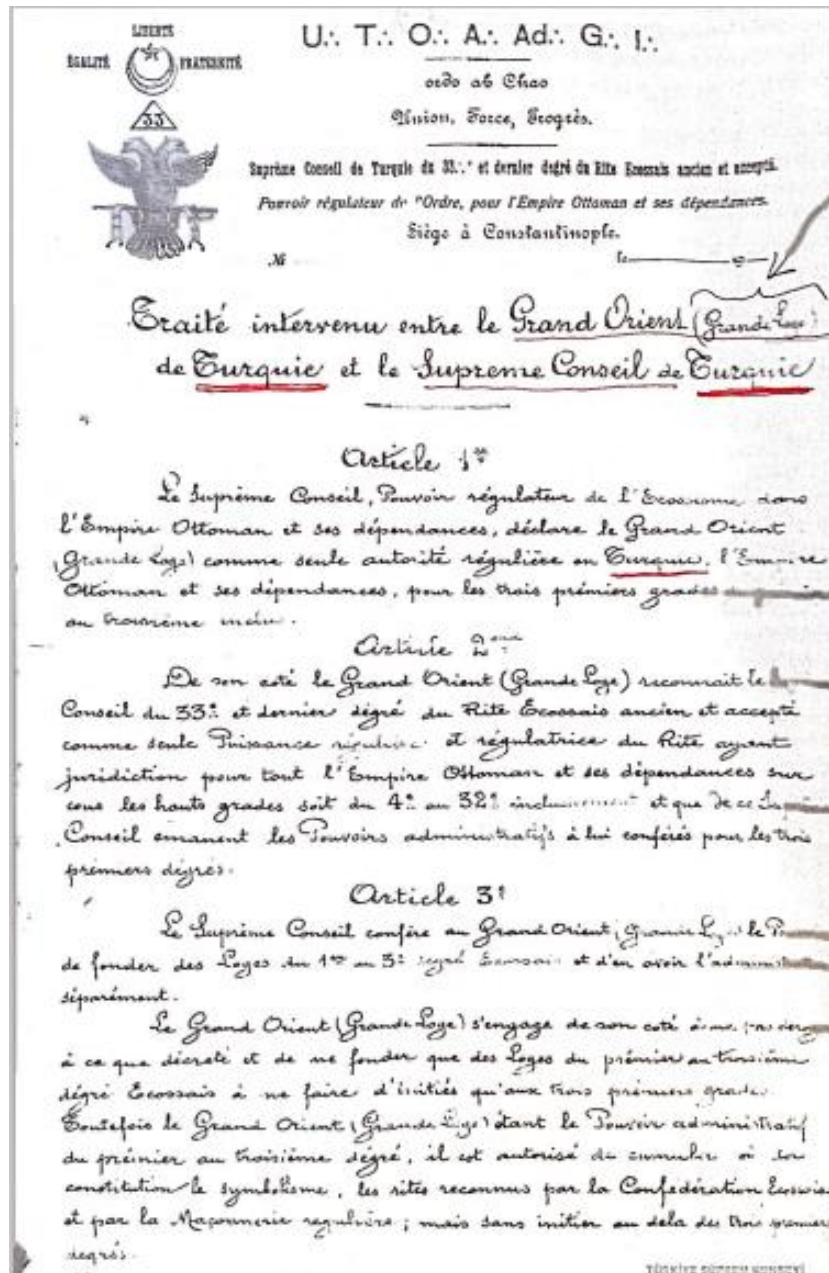 LIBERTÉ
ÉGALITÉ FRATERNITÉ
33
U∴ T∴ O∴ A∴ Ad∴ G∴ I∴
ordo ab Chao
Union, Force, Progrès.
Suprême Conseil de Turquie du 33∴ᵉ et dernier degré du Rite Ecossais ancien et accepté.
Pouvoir régulateur de l'Ordre, pour l'Empire Ottoman et ses dépendances.
Siège à Constantinople.
№ le
Traité intervenu entre le Grand Orient (Grande Loge)
de Turquie et le Supreme Conseil de Turquie
Article 1er
Le Suprème Conseil, Pouvoir régulateur de l'Ecossisme dans
l'Empire Ottoman et ses dépendances, déclare le Grand Orient
(Grande Loge) comme seule autorité régulière en Turquie, l'Empire
Ottoman et ses dépendances, pour les trois prémiers grades
au troisième inclu.
Article 2
De son coté le Grand Orient (Grande Loge) reconnait le
Conseil du 33e et dernier dégré du Rite Ecossais ancien et accepté
comme seule Puissance régulière et régulatrice du Rite ayant
juridiction pour tout l'Empire Ottoman et ses dépendances sur
tous les hauts grades soit du 4e au 32e inclusivement et que de ce
Conseil emanent les Pouvoirs administratifs à lui conférés pour les trois
prémiers dégrés.
Article 3e
Le Suprème Conseil confère au Grand Orient (Grande Loge) le
de fonder des Loges du 1er au 3e degré Ecossais et d'en avoir l'administ
séparément.
Le Grand Orient (Grande Loge) s'engage de son coté à ne pas derog
à ce que décreté et de ne fonder que des Loges du prémier au troisième
dégré Ecossais à ne faire d'initiés qu'aux trois prémiers grades.
Toutefois le Grand Orient (Grande Loge) étant le Pouvoir administratif
du prémier au troisième dégré, il est autorisé de cumuler
constitution le symbolisme, les rites reconnus par la Confédération Ecossaise
et par la Maçonnerie regulière ; mais sans initier au dela des trois premiers
degrés.
TÜRKİYE